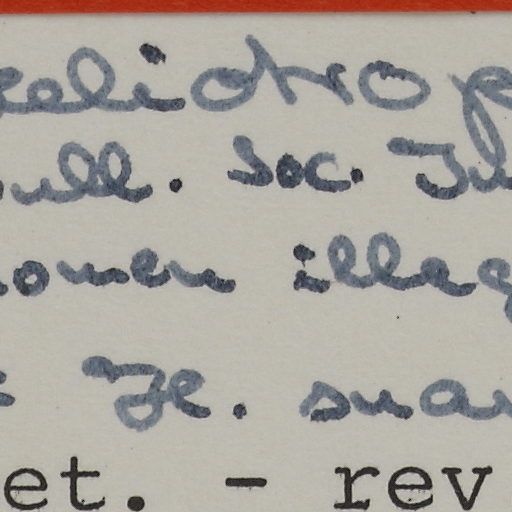 eliotrop
ull. Soc.
nomen illeg
Je. suav
et. - rev